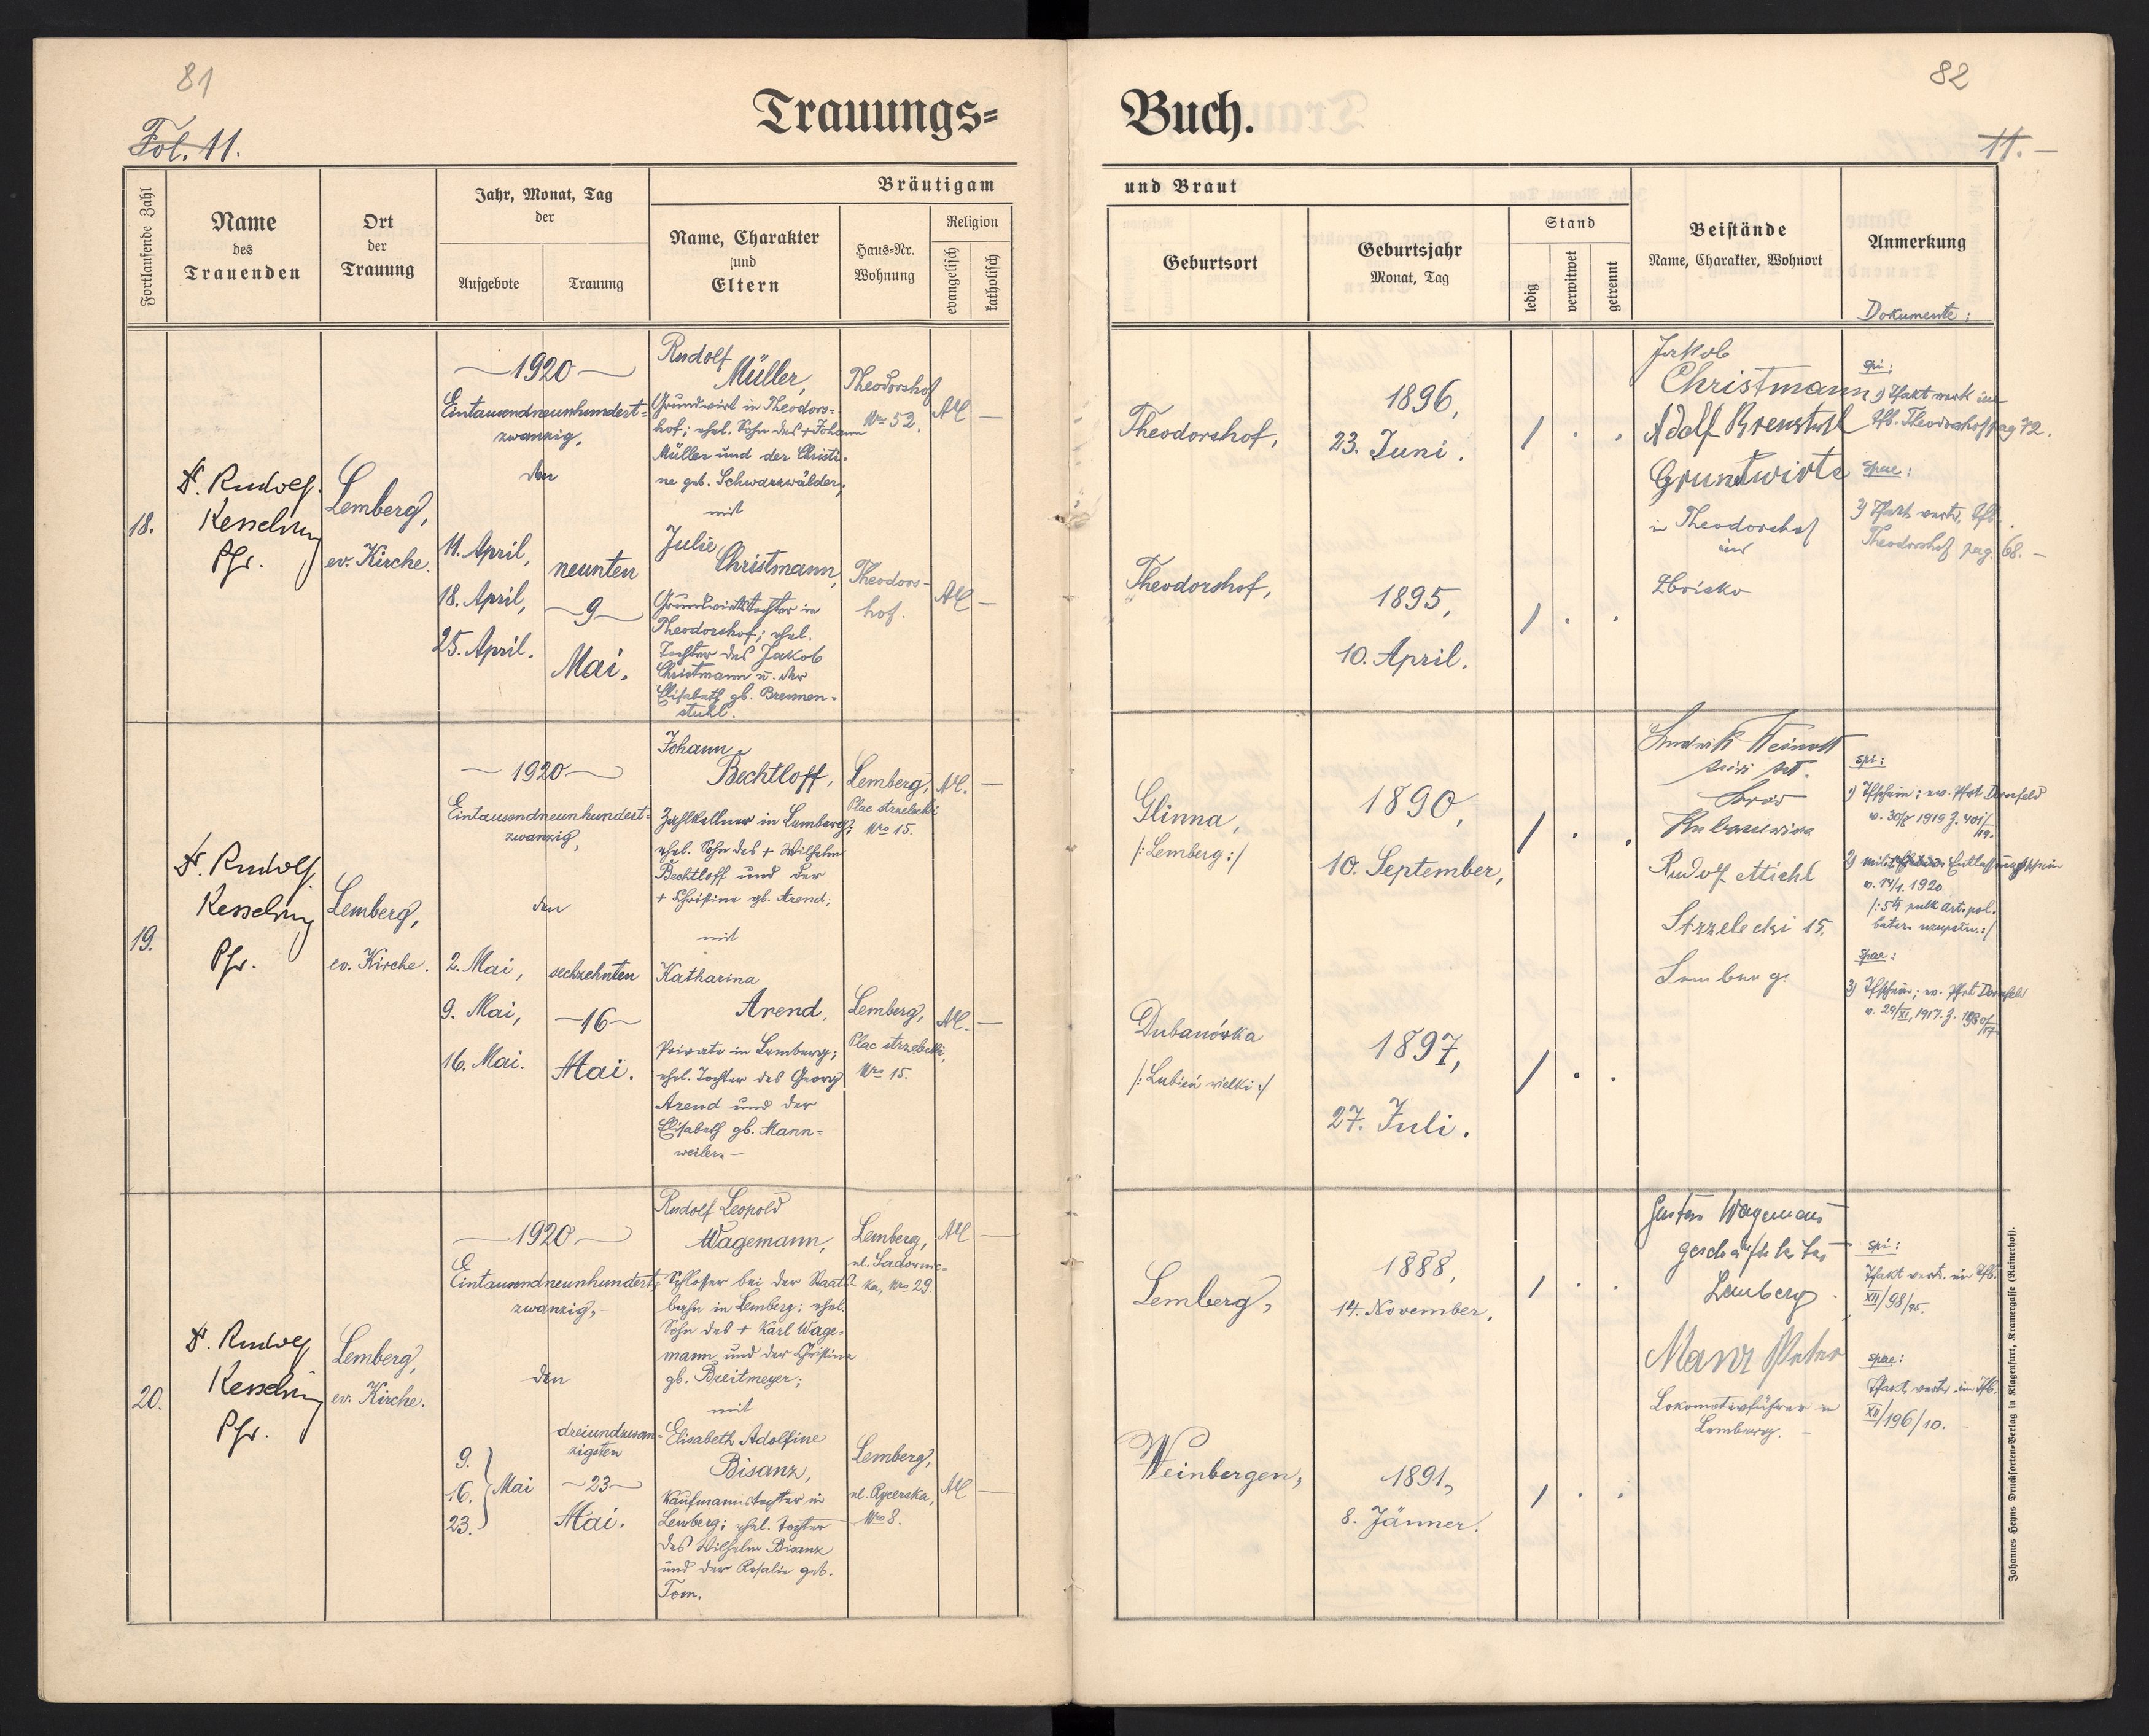 81
82
Fol. 11.
11.
Trauungs=
Buch.
Fortlaufende Zahl
Name
des
Trauenden
Ort
der
Trauung
Jahr, Monat, Tag
der
Aufgebote
Trauung
Bräutigam
Name, Charakter
und
Eltern
Haus=Nr.
Wohnung
Religion
evangelisch
katholisch
und Braut
Geburtsort
Geburtsjahr
Monat, Tag
Stand
ledig
verwitwet
getrennt
Beistände
Name, Charakter, Wohnort
Anmerkung
Dokumente:
18.
Dr. Rudolf
Kesselring
Pfr.
Lemberg,
ev. Kirche.
1920
Eintausendneunhundert=
zwanzig,
den
11. April,
18. April,
25. April.
neunten
9
Mai.
Rudolf
Müller,
Grundwirt in Theodors=
hof; ehel. Sohn des + Johann
Müller und der Christi-
ne geb. Schwarzwälder;
mit
Julie
Christmann,
Grundwirtstochter in
Theodorshof; ehel.
Tochter des Jakob
Christmann u. der
Elisabeth gb. Brennen-
stuhl.
Theodorshof
Nro 52.
AC
Theodors-
hof.
AC
Theodorshof,
1896,
23. Juni.
Theodorshof,
1895,
10. April.
Jakob
Christmann
Adolf
Grundwirte
in Theodorshof
und
Zboisko
spi:
Theodorshof pag 72.
spae:
Theodorshof pag. 68.
19.
Dr. Rudolf
Kesselring
Pfr.
Lemberg,
ev. Kirche.
1920
Eintausendneunhundert=
zwanzig,
den
2. Mai,
9. Mai,
16. Mai.
sechzehnten
16
Mai.
Johann
Bechtloff,
Zahlkellner in Lemberg;
ehel. Sohn des + Wilhelm
Bechtloff und der
+ Christine gb. Arend;
mit
Katharina
Arend,
Private in Lemberg;
ehel. Tochter des Georg
Arend und der
Elisabeth gb. Mann=
weiler.
Lemberg,
Plac strzelecki
Nro 15.
AC.
Lemberg,
Plac strzelecki,
Nro 15.
AC.
Glinna,
/:Lemberg:/
1890,
10. September,
Dubanówka
/:Lubień wielki:/
1897,
27. Juli.
Ludwik
Rudolf Michl
Strzelecki 15.
Lemberg.
spi:
1) Tfschein; ev. Pfrt Dornfeld
2) Entlassungsschein
v. 14/1. 1920
/:5ty pulk art. pol.
spae:
3) Tfschein; ev. Pfrt Dornfeld
v. 29/XI. 1917.
20.
Dr. Rudolf
Kesselring
Pfr.
Lemberg,
ev. Kirche.
1920
Eintausendneunhundert=
zwanzig,
den
9.
16. Mai
23.
dreiundzwan-
zigsten
23
Mai.
Rudolf Leopold
Wagemann,
Schlosser bei der Staats-
bahn in Lemberg; ehel.
Sohn des + Karl Wage-
mann und der Christine
gb. Breitmeyer;
mit
Elisabeth Adolfine
Bisanz,
Kaufmannstochter in
Lemberg; ehel. Tochter
des Wilhelm Bisanz
und der Rosalie geb.
Tom.
Lemberg,
ul. Sadowni-
ka, Nro 29.
AC
Lemberg,
ul. Rycerska,
Nro 8.
AC
Lemberg,
1888,
14. November,
Weinbergen,
1891,
8. Jänner.
Gustav Wagemann
Lemberg
Manz Peter
Lokomotivführer in
Lemberg.
spi:
Tfakt vertr. im Tfb.
XII/98/95.
spae:
Tfakt vertr. im Tfb.
XII/196/10.
Johannes Heyns Drucksorten=Verlag in Klagenfurt, Kramergasse (Rainerhof).